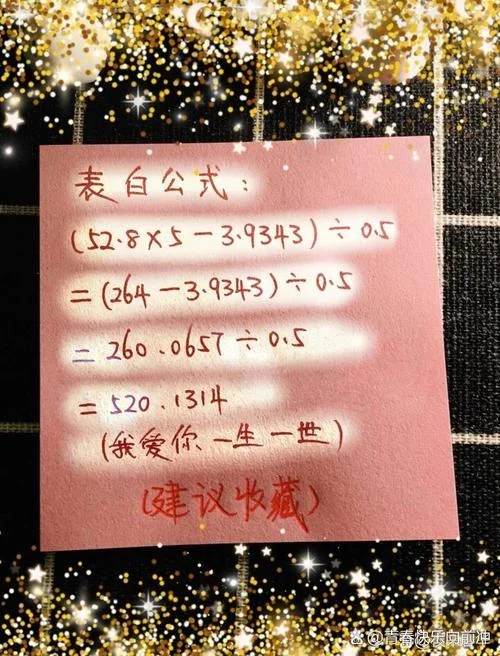 表白公式:
(52.8×5-3.9343)÷0.5
=(264-3.9343)÷0.5
=260.0657÷0.5
=520.1314
(我爱你一生一世)
(建议收藏)
青春快乐向前冲